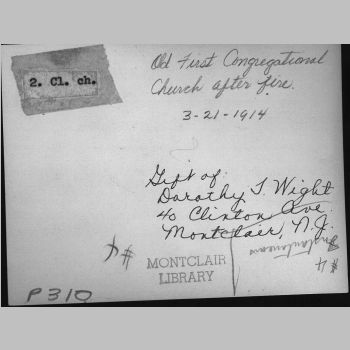 2. Cl. ch.
Old First Congregational
Church after fire.
3-21-1914
Gift of
Dorothy T. Wight
40 Clinton Ave.
Montclair, N.J.
#4
MONTCLAIR
LIBRARY
#4
P310